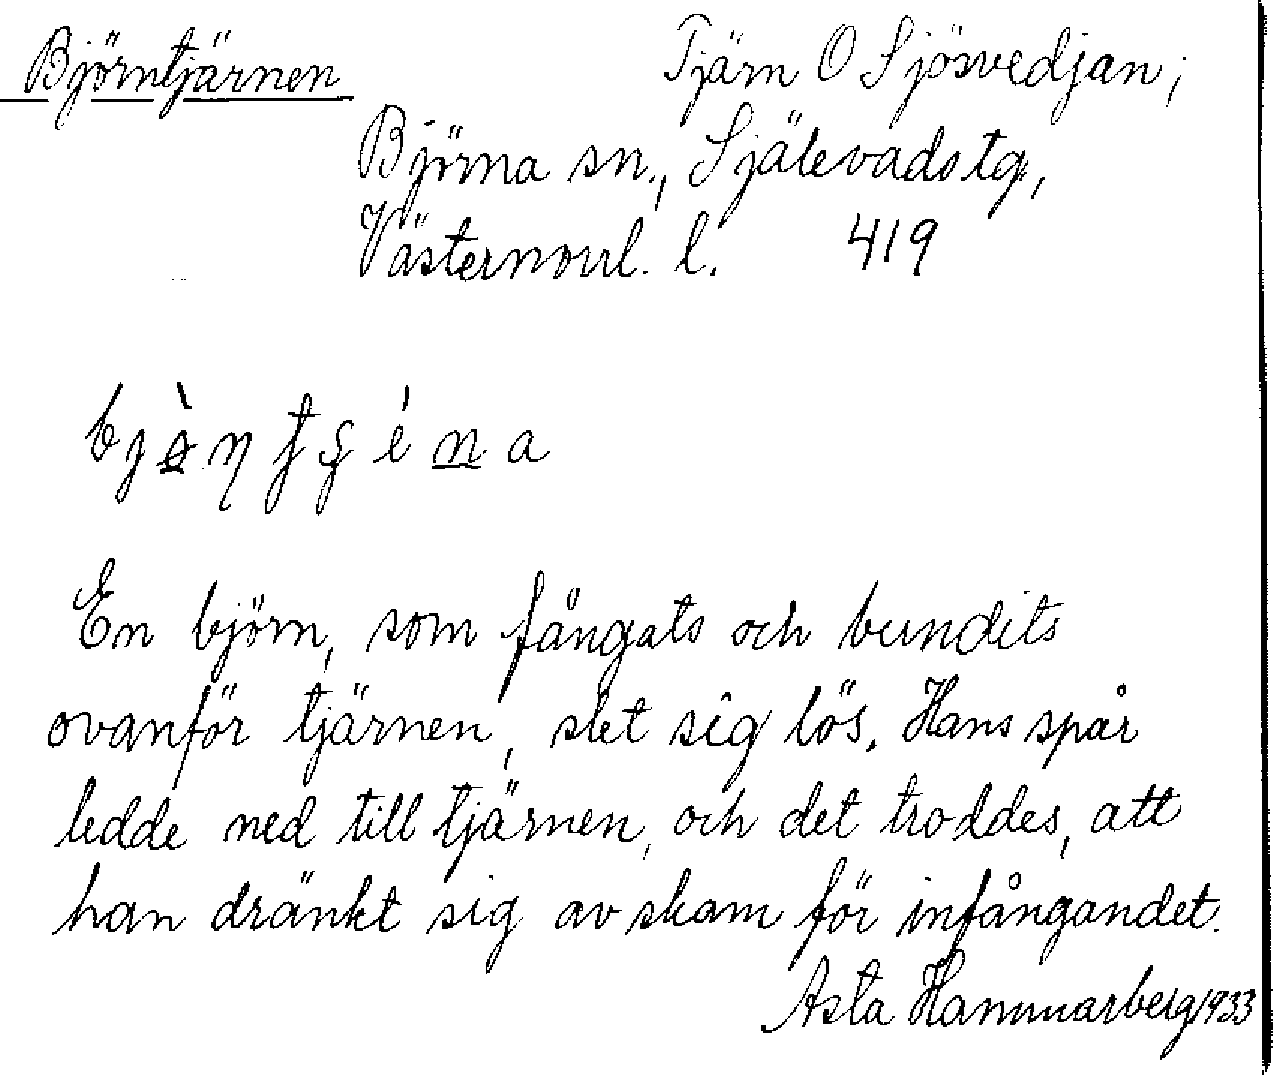 Björntjärnen Tjärn O Sjösvedjan;
Björna sn., Själevads tg,
Västernorrl. l. 419
En björn, som fångats och bundits
ovanför tjärnen, slet sig lös. Hans spår
ledde ned till tjärnen, och det troddes, att
han dränkt sig av skam för infångandet.
Asta Hammarberg 1933